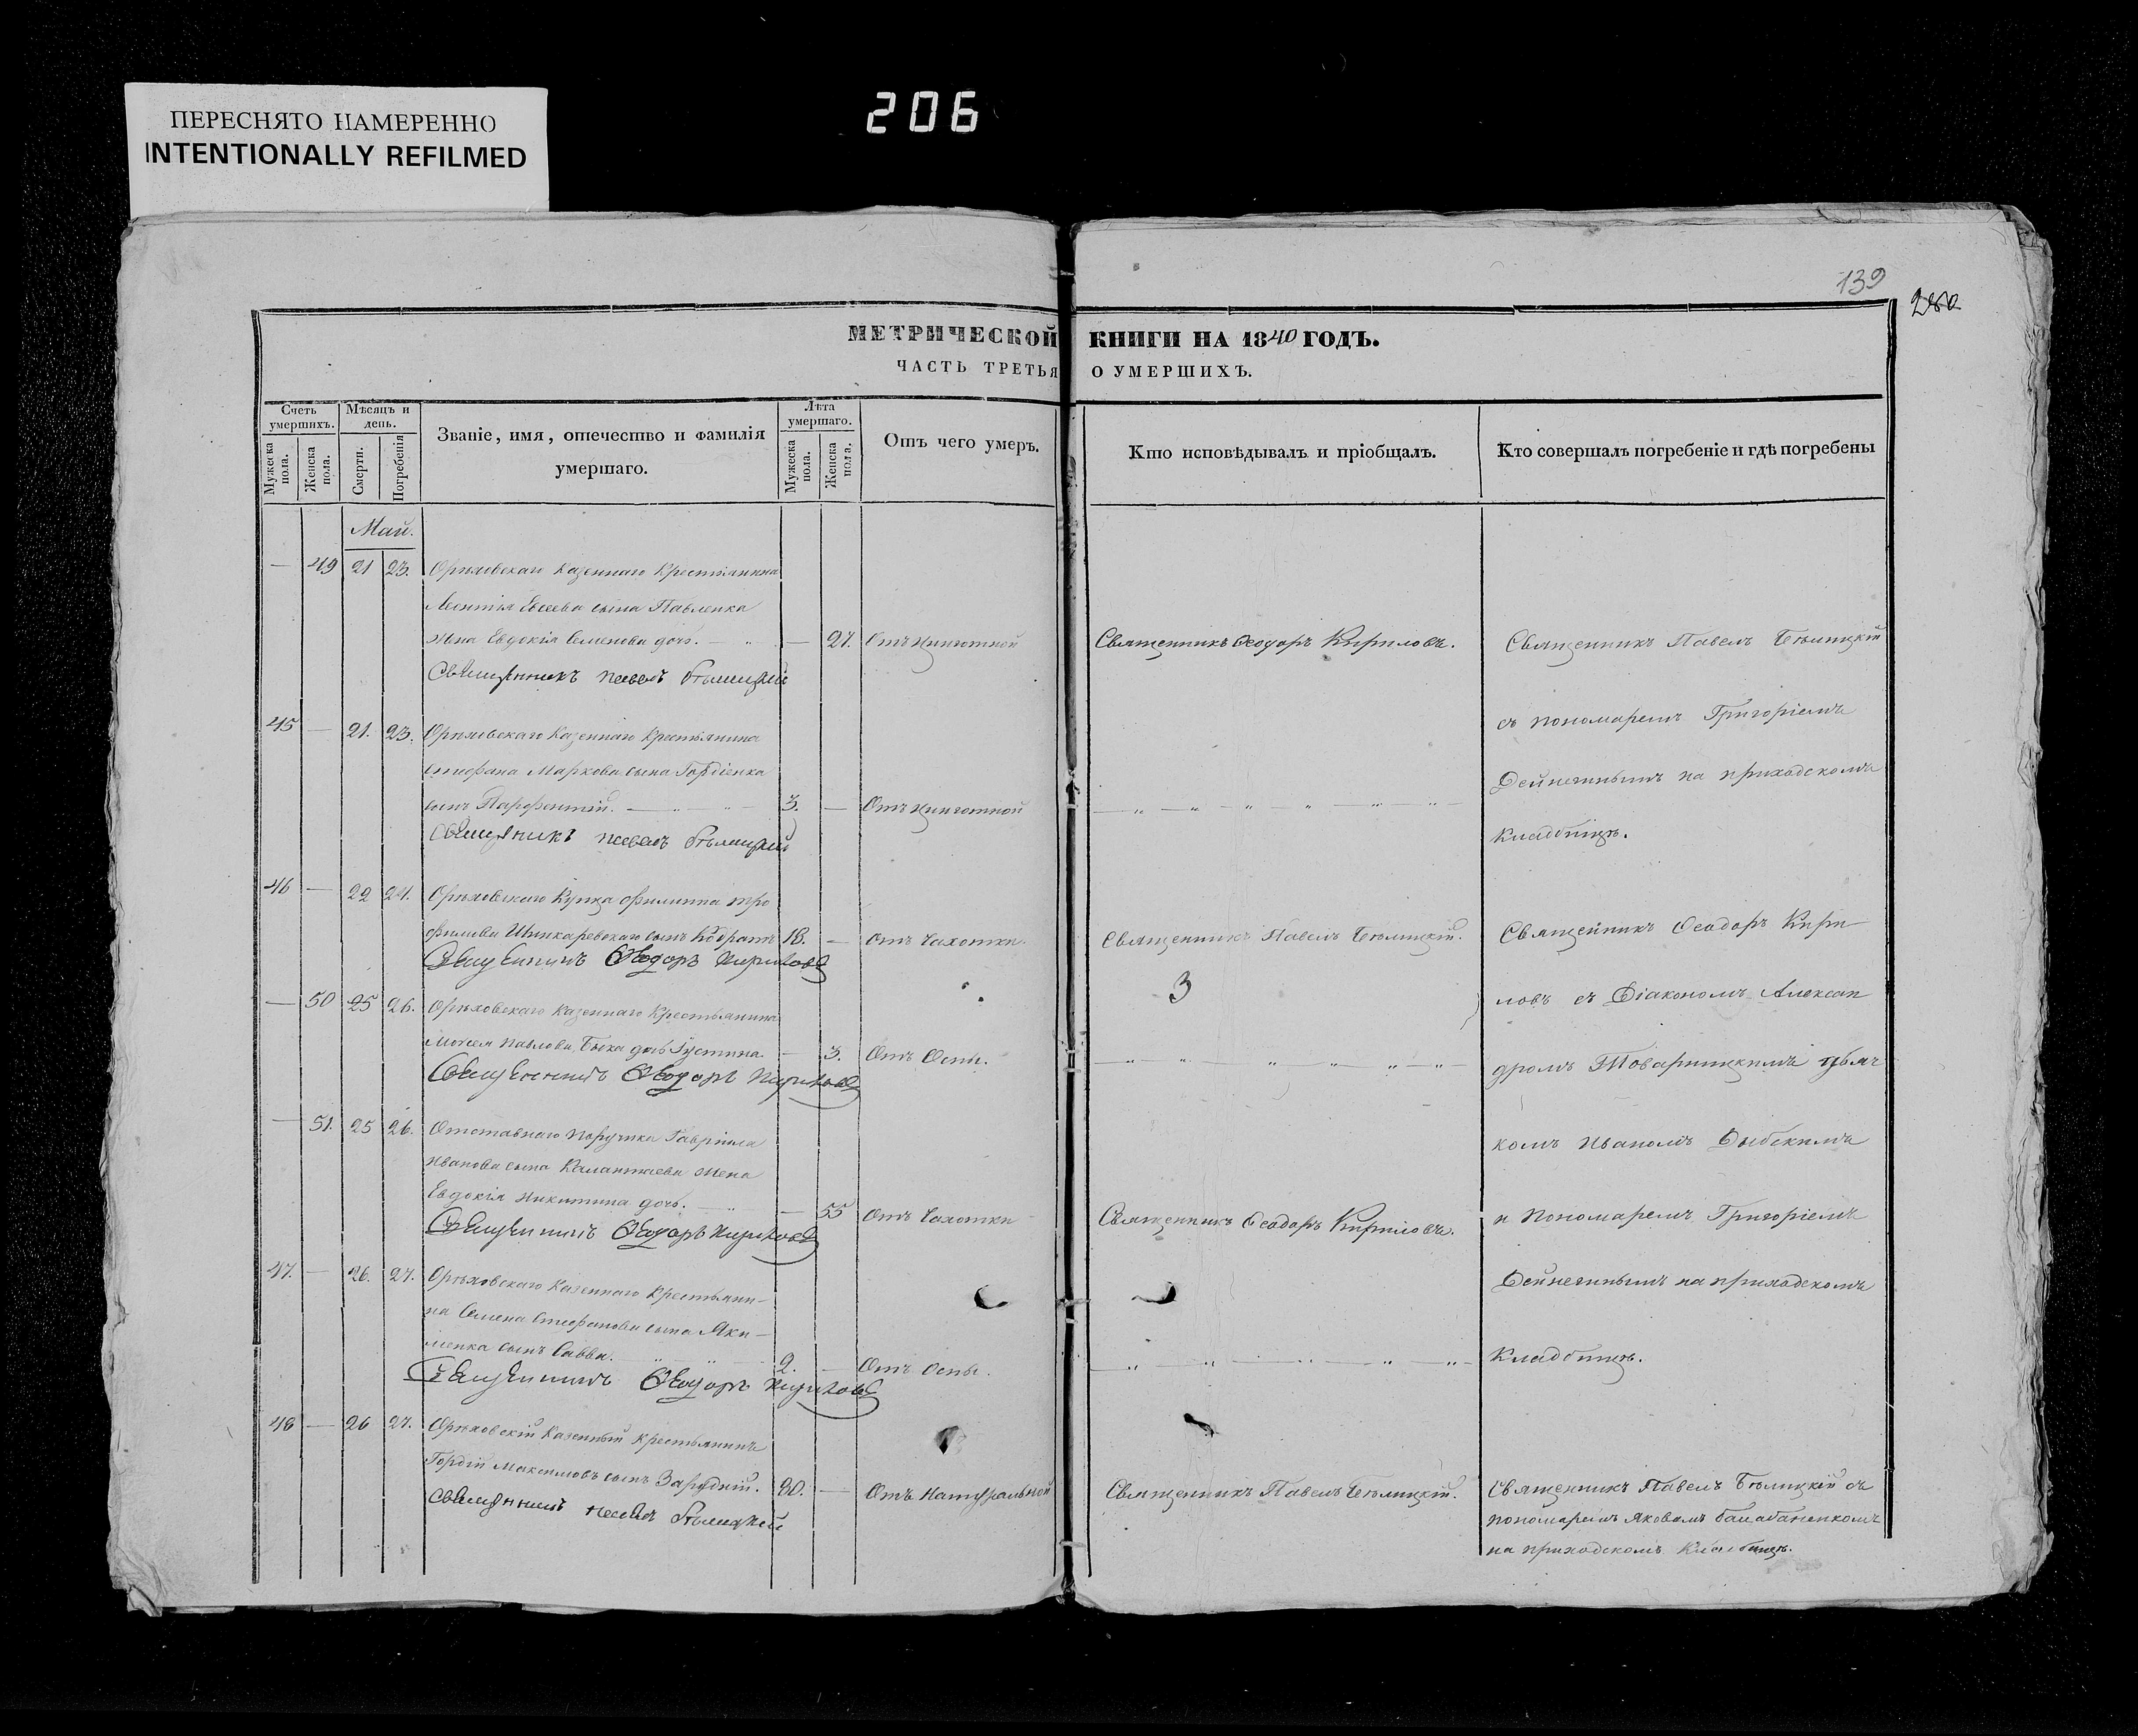 ПЕРЕСНЯТО НАМЕРЕННО
INTENTIONALLY REFILMED
206
139
280
МЕТРИЧЕСКОЙ КНИГИ НА 1840 ГОДЪ.
ЧАСТЬ ТРЕТЬЯ О УМЕРШИХЪ.
Счетъ умершихъ.
Мужеска пола.
Женска пола.
Мѣсяцъ и день.
Смерти.
Погребенія
Званіе, имя, отечество и фамилія умершаго.
Лѣта умершаго.
Мужеска пола.
Женска пола.
Отъ чего умеръ.
Кто исповѣдывалъ и пріобщалъ.
Кто совершалъ погребеніе и гдѣ погребены
Май.
— 49 21 23. Орѣховскаго Казеннаго Крестьянина
Леонтія Евсеева сына Павленка
жена Евдокія Семенова дочь. — 27. Отъ цынготной Священникъ Ѳеодоръ Кириловъ. Священникъ Павелъ Бѣлицкій
Священникъ Павелъ Бѣлицкій
съ пономаремъ Григоріемъ
45 — 21. 23. Орѣховскаго Казеннаго Крестьянина
Стефана Маркова сына Гордіенка
Дейнегинымъ на приходскомъ
сынъ Парфентій. 3. — Отъ цынготной
Священникъ Павелъ Бѣлицкій
Кладбищѣ.
46 — 22 24. Орѣховскаго Купца Филиппа тро
фимова Шинкаревскаго сынъ Кодратъ 18. — Отъ Чахотки. Священникъ Павелъ Бѣлицкій. Священникъ Ѳеодоръ Кири
Священникъ Ѳеодоръ Кириловъ
3
— 50 25 26. Орѣховскаго Казеннаго Крестьянина
ловъ съ Діакономъ Алексан
Моисея Павлова Быка дочь Іустина. — 3. Отъ Оспы.
дромъ Товарницкимъ дьяч
Священникъ Ѳеодоръ Кириловъ
— 51. 25 26. Отставнаго Поручика Гавріила
комъ Иваномъ Дыбскимъ
Иванова сына Калантаева жена
Евдокія Никитина дочь. — 55 Отъ Чахотки Священникъ Ѳеодоръ Кириловъ. и Пономаремъ Григоріемъ
Священникъ Ѳеодоръ Кириловъ
47. — 26. 27. Орѣховскаго Казеннаго Крестьяни-
Дейнегинымъ на приходскомъ
на Семена Стефанова сына Яки-
менка сынъ Савва. 2. — Отъ Оспы.
Кладбищѣ.
Священникъ Ѳеодоръ Кириловъ
48 — 26 27. Орѣховскій Казенный Крестьянинъ
Гордій Максимовъ сынъ Зарудній. 80. — Отъ Натуральной Священникъ Павелъ Бѣлицкій. Священникъ Павелъ Бѣлицкій съ
Священникъ Павелъ Бѣлицкій
пономаремъ Яковомъ Балабаненкомъ
на приходскомъ Кладбищѣ.